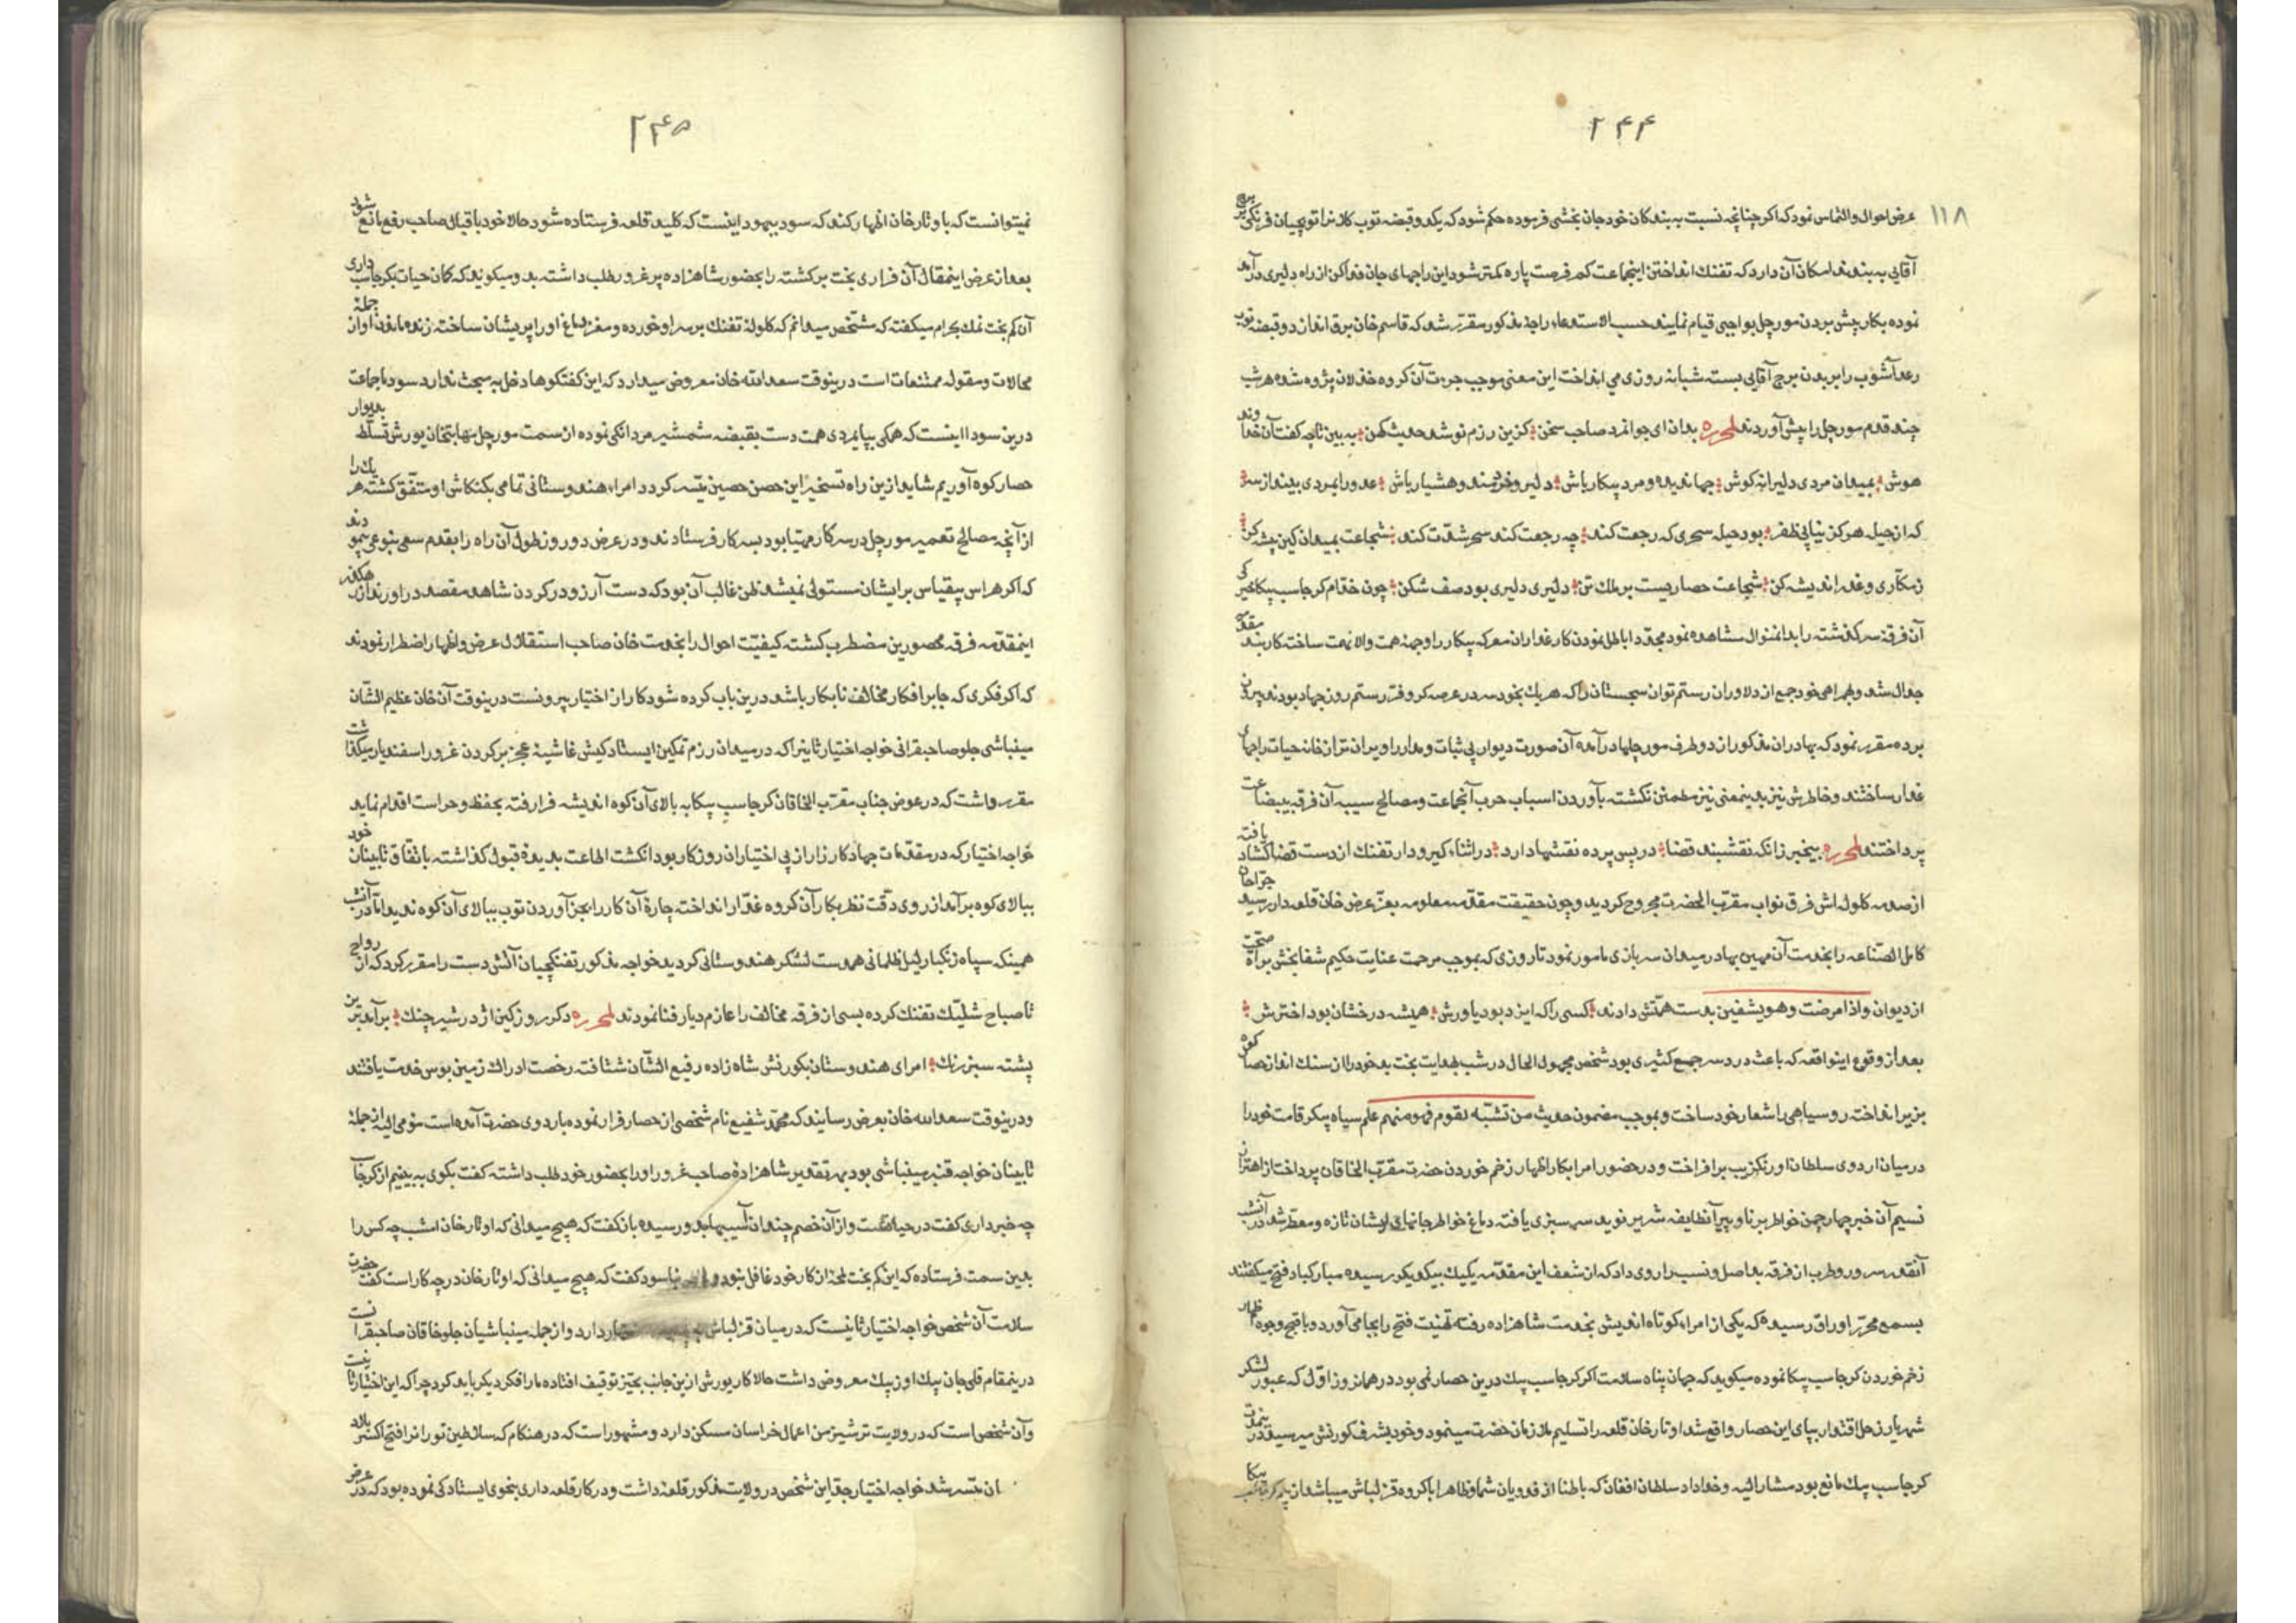 ۲۴۴
۱۱۸
عرض احوال والتماس نمود که اکر چنانچه نسبت به بندکان خود جان بخشی فرموده حکم شود که یکدو قبضه توب کلانرا توپچیان فرنکی بر برج
آقایی به بندند امکان آن دارد که تفنک انداختن اینجماعت کم فرصت پاره کمتر شود این راجهای جان فدا کن از راه دلیری در آمد
نموده بکار پیش بردن مورچل بواجبی قیام نمایند حسب الاستدعاء راجه مذکور مقرر شد که قاسم خان برق انداز دو قبضه توپ
رعد آشوب را بر بدن برج آقایی بسته شبانه روزی می انداخت این معنی موجب جرءت آن کروه خذلان پژوه شده هر شب
چند قدم مورچل را پیش آوردند لمحرره بدان ای جوانمرد صاحب سخن کزین رزم نو شد حدیث کهن به بین تا چه کفت آن خداوند
هوش بمیدان مردی دلیرانه کوش جهاندیده و مرد پیکار باش دلیر و خردمند و هشیار باش عدو را بمردی بیندازسر
که از حیل هرکز نیابی ظفر بود حیله سحری که رجعت کند چه رجعت کند سحر شدت کند شجاعت بمیدان کین پیشه کن
زمکاری و غدر اندیشه کن شجاعت حصاریست بر ملک تن دلیری دلیری بود صف شکن چون خدام کرجاسب پیکا خیرکی
آن فرقه سرکذشته را بدانمنوال مشاهده نمود مجددا باطل نمودن کار غداران معرکه پیکار را وجهه همت والا نهمت ساخته کاربند مقدمه
جدال شد و بهمراهی خود جمع از دلاوران رستم توان سجستان را که هریک بخود سر در عرصه کر و فر رستم روز جهاد بودند بیرون
برده مقرر نمود که بهادران مذکور از دو طرف مورچلها درآمده آن صورت دیوار بی ثبات و مدار را ویران تر از خانه حیات راجهای
غدار ساختند و خاطرش نیز بدینمعنی نیز مطمئن نکشته بآوردن اسباب حرب آنجماعت و مصالح سیبه آن فرقه بیبضاعت
پرداختند لمحرره بیخبر زانکه نقشبند قضا در پس پرده نقشها دارد در اثناء کیر و دار تفنک از دست قضا کشاد یافته
از صدمه کلوله اش فرق نواب مقرب الحضرت مجروح کردید و چون حقیقت مقدمه معلومه بعز عرض خان قلعه دار رسید جراحان
کامل الصناعه را بخدمت آن مهین بهادر میدان سربازی مامور نمود تا روزی که بموجب مرحمت عنایت حکیم شفا بخش برات صحت
از دیوان واذا مرضت وهو یشفین بدست همتش دادند کسی را که ایزد بود یاورش همیشه درخشان بود اخترش
بعد از وقوع اینواقعه که باعث درد سر جمع کثیری بود شخص مجهول الحال در شب بهدایت بخت بد خود را از سنک انداز حصار کعرن
بزیر انداخته رو سیاهی را شعار خود ساخت و بموجب مضمون حدیث من تشبه بقوم فهو منهم علم سیاه پیکر قامت خود را
در میان اردوی سلطان اورنکزیب برافراخت و در حضور امرا بکار اظهار زخم خوردن حضرت مقرب الخاقان پرداخت از اهتزاز
نسیم آن خبر چهار چمن خواطر برنا و پیر آنطایفه شریر نوید سرسبزی یافته دماغ خواطر جانهای ایشان تازه و معطر شد در آنشب
آنقدر سرور و طرب ازان فرقه بد اصل و نسب را روی داد که از شعف این مقدمه یک یک بیکدیکر رسیده مبارکباد فتح میکفتند
بسمع محرر اوراق رسیده که یکی از امراء کوتاه اندیش بخدمت شاهزاده رفته تهنیت فتح را بجا می آورد و باقبح وجوه اظهار
زخم خوردن کرجاسب پیکا نموده میکوید که جهان پناه سلامت اکر کرجاسب بیک درین حصار نمی بود در همان روز اول که عبور لشکر
شهریار زحل اقتدار بپای این حصار واقع شد اوتارخان قلعه را تسلیم ملازمان حضرت مینمود و خود بشرف کورنش میرسید در بنمدت
کرجاسب بیک مانع بود مشارالیه و خداداد سلطان افغان که باطنا از فدویان شما و ظاهرا با کروه قزلباش میباشد از
۲۴۵
نمیتوانست که باوتارخان اظهار کند که سود و بهبود اینست که کلید قلعه فرستاده شود حالا خود باقبال صاحب رفع مانع شود
بعد از عرض اینمقال آن فراری بخت برکشته را بحضور شاهزاده پر غرور طلب داشته بدو میکویند که کمان حیات بکرجاسب داری
آن کم بخت نمک بحرام میکفته که مشخص میدانم که کلوله تفنک بر سر او خورده و مغز دماغ او را پریشان ساخته زنده ماندن او از جملهٔ
محالات و مقوله ممتنعات است درینوقت سعدالله خان معروض میدارد که این کفتکوها دخل به مبحث ندارد سود ما جماعت
درین سودا اینست که همکی بپایمردی همت دست بقبضه شمشیر مردانکی نموده از سمت مورچل مهابتخان یورش تسلط بدیوار
حصار کوه آوریم شاید ازین راه تسخیر این حصن حصین میسر کردد امراء هندوستانی تمامی بکنکاش او متفق کشته هریک را
از آنچه مصالح تعمیر مورچل در سرکار مهیا بود بسر کار فرستادند و در عرض دو روز طول آن راه را بقدم سعی بنوعی پیمودند
که اکر هراس بیقیاس بر ایشان مستولی نمیشد ظن غالب آن بود که دست آرزو در کردن شاهد مقصد دراورند از رهکذر
اینمقدمه فرقه محصورین مضطرب کشته کیفیت احوال را بخدمت خان صاحب استقلال عرض و اظهار اضطرار نمودند
که اکر فکری که جابر افکار مخالف نابکار باشد درین باب کرده شود کار از اختیار بیرونست درینوقت آن خان عظیم الشان
مینباشی جلو صاحبقرانی خواجه اختیار ثانیرا که در میدان رزم تمکین ایستاد کیش غاشیه عجز بر کردن غرور اسفندیار میکذاشت
مقرر داشت که در عوض جناب مقرب الخاقان کرجاسب پیکا به بالای آن کوه اندیشه فرا رفته بحفظ و حراست اقدام نماید
خواجه اختیار که در مقدمات جهاد کارزار از بی اختیاران روزکار بود انکشت اطاعت بدیدهٔ قبول کذاشته باتفاق تابینان خود
ببالای کوه برآمد از روی دقت نظر بکار آن کروه غدار انداخته چارهٔ آن کار را بجز آوردن توب ببالای آن کوه ندید اما در آنشب
همینکه سپاه زنکبار لیل ظلمانی همدست لشکر هندوستانی کردید خواجه مذکور تفنکچیان آتش دست را مقرر کرد که از رواح
تا صباح شلیک تفنک کرده بسی از فرقه مخالف را عازم دیار فنا نمودند لمحرره دکر روز کین اژدر شیر چنک برآمد برین
پشته سبز رنک امرای هندوستان بکورنش شاه زاده رفیع الشان شتافته رخصت ادراک زمین بوس خدمت یافتند
ودرینوقت سعدالله خان بعرض رسانید که محمد شفیع نام شخصی از حصار فرار نموده باردوی حضرت آمده است مومی الیه از جملهٔ
تابینان خواجه قنبر مینباشی بود بهر تقدیر شاهزادهٔ صاحب غرور او را بحضور خود طلب داشته کفت بکوی به بینیم از کرجاسب
چه خبر داری کفت در حیاتست و از آن خصم چندان آسیبها بدو رسیده باز کفت که هیچ میدانی که اوتارخان امشب چه کس را
بدین سمت فرستاده که این کم بخت لمحهٔ از کار خود غافل نبود و کفت که هیچ میدانی که اوتارخان در چه کار است کفت حضرت
سلامت آن شخص خواجه اختیار ثانیست که در میان قزلباش دارد و از جمله مینباشیان جلو خاقان صاحبقرانست
درینمقام قلی جان بیک اوزبک معروض داشت حالا کار یورش ازین جانب بحیز توقیف افتاده ما را فکر دیکر باید کرد چرا که این اختیار ثانیست
و آن شخصی است که در ولایت ترشیز من اعمال خراسان مسکن دارد و مشهور است که در هنکام که سلاطین تورانرا فتح اکثر بلاد
ان میسر شد خواجه اختیار جد این شخص در ولایت مذکور قلعهٔ داشت و در کار قلعه داری بنحوی ایستادکی نموده بود که در عرض